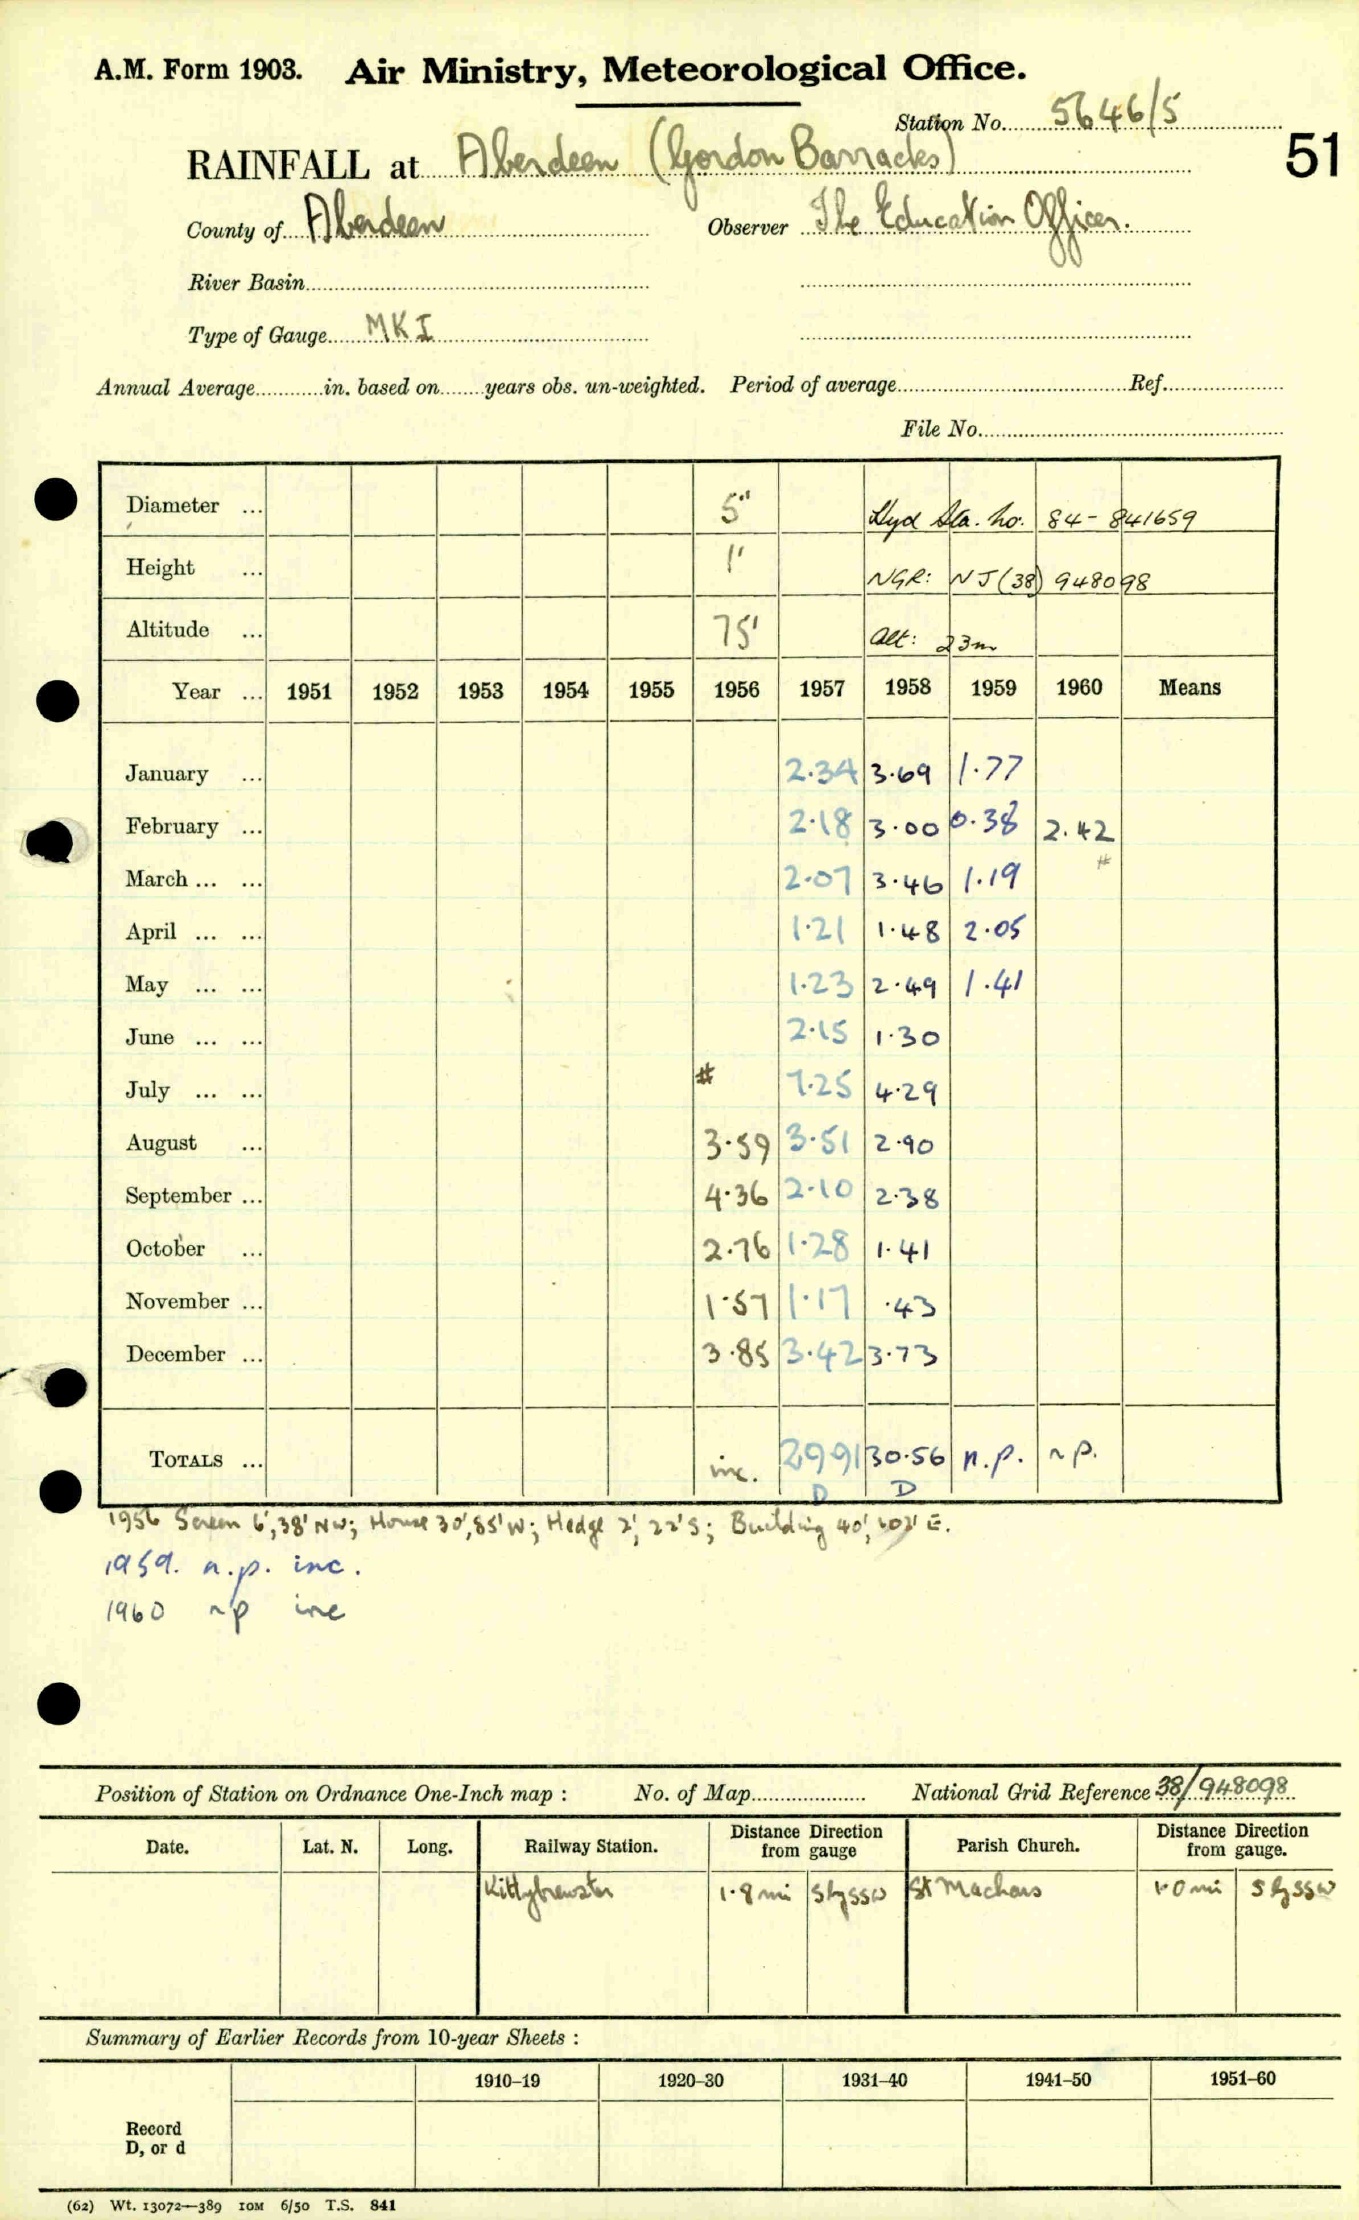 A.M. Form 1903. Air Ministry, Meteorological Office.
Station No. 5646/5
51
RAINFALL at Aberdeen (Gordon Barracks)
County of Aberdeen Observer The Education Officer.
River Basin
Type of Gauge MK I
Annual Average in. based on years obs. un-weighted. Period of average Ref.
File No.
Diameter ... 5" Hyd Sta. No. 84 - 841659
Height ... 1' NGR: NJ (38) 948098
Altitude ... 75' Alt: 23m
Year ... 1951 1952 1953 1954 1955 1956 1957 1958 1959 1960 Means
January ... 2.34 3.69 1.77
February ... 2.18 3.00 0.38 2.42
#
March ... ... 2.07 3.46 1.19
April ... ... 1.21 1.48 2.05
May ... ... 1.23 2.49 1.41
June ... ... 2.15 1.30
July ... ... # 7.25 4.29
August ... 3.59 3.51 2.90
September ... 4.36 2.10 2.38
October ... 2.76 1.28 1.41
November ... 1.57 1.17 .43
December ... 3.85 3.42 3.73
TOTALS ... inc. 29.91 30.56 n.p. n.p.
D D
1956 Screen 6', 38' NW; House 30', 85' W; Hedge 2', 22' S; Building 40', E.
1959. n.p. inc.
1960 np inc
Position of Station on Ordnance One-Inch map : No. of Map National Grid Reference 38/948098
Date. Lat. N. Long. Railway Station. Distance Direction from gauge Parish Church. Distance Direction from gauge.
Kittybrewster 1.8 mi S by SSW St Machars 1.0 mi S by SSW
Summary of Earlier Records from 10-year Sheets :
1910–19 1920–30 1931–40 1941–50 1951–60
Record
D, or d
(62) Wt. 13072—389 10M 6/50 T.S. 841